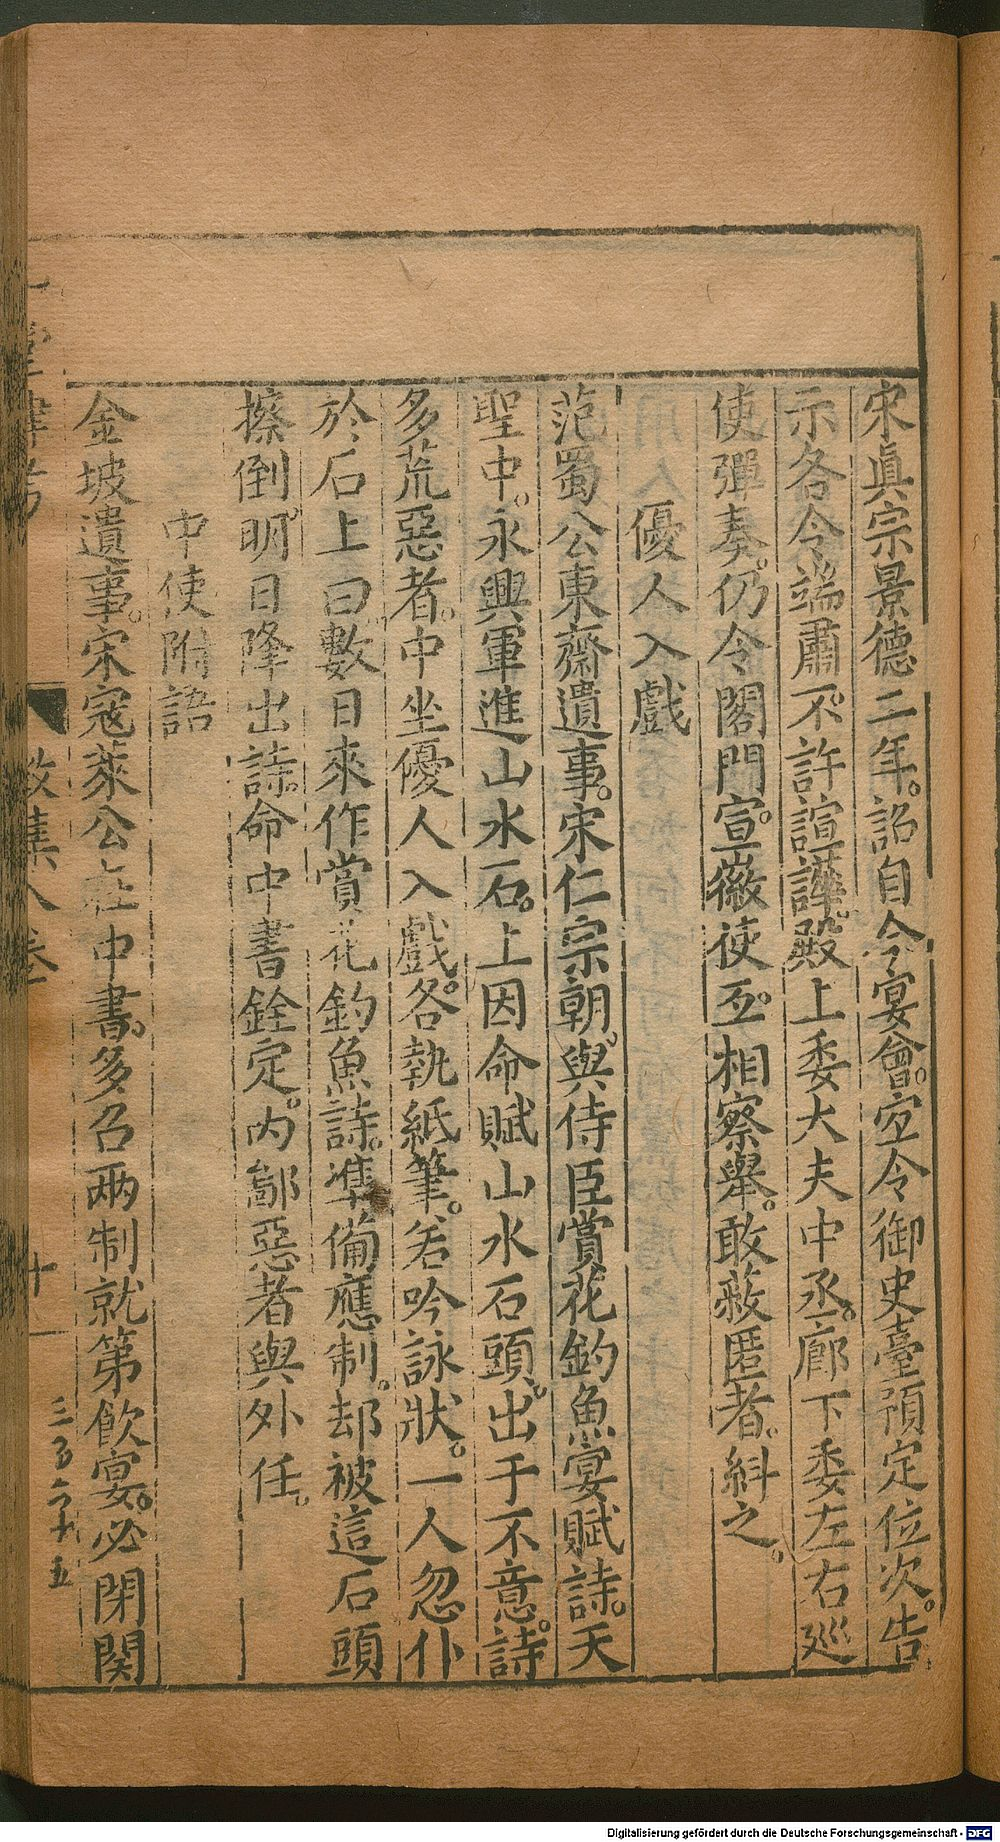 宋眞宗景德二年。詔自今宴會。宜令御史臺預定位次。告
示各令端肅。不許諠譁。殿上委大夫中丞。廊下委左右廵
使彈奏。仍令閣門宣。徽使互。相察舉。敢蔽匿者。糾之。
優人入戲
范蜀公東齋遺事。宋仁宗朝。與侍臣賞花釣魚宴賦詩。天
聖中。永興軍進山水石。上因命賦山水石頭。出于不意。詩
多荒惡者。中坐優人入戲。各執紙筆。若吟詠狀。一人忽仆
於石上曰數日來作賞花釣魚詩。準備應制。却被這石頭
擦倒。明日降出詩。命中書銓定。內鄙惡者與外任。
中使附語
金坡遺事。宋寇萊公在中書。多召兩制就第飲宴。必閉関
八卷
十
三百六十五
Digitalisierung gefördert durch die Deutsche Forschungsgemeinschaft - DFG